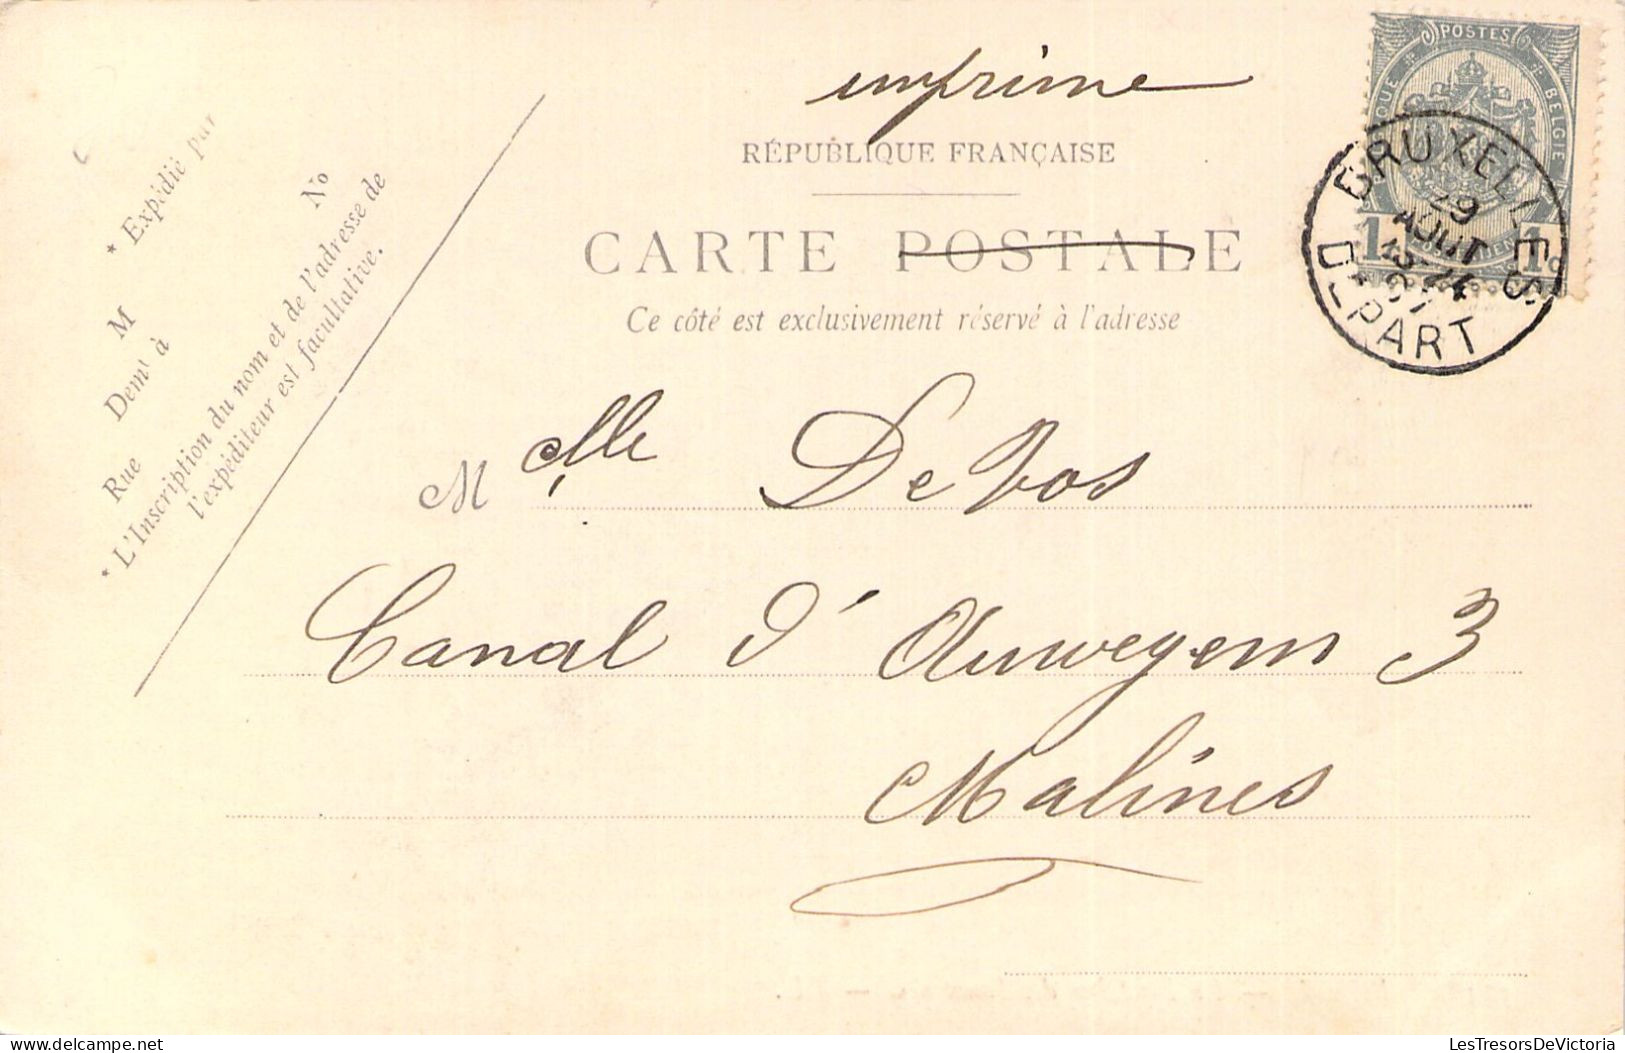 imprime
RÉPUBLIQUE FRANÇAISE
CARTE POSTALE
Ce côté est exclusivement réservé à l'adresse
POSTES
BELGIE
1 1c
BRUXELLES
29
AOUT
DÉPART
* Expédié par
M
Demt à
Rue
No
* L'Inscription du nom et de l'adresse de
l'expéditeur est facultative.
M elle De Vos
Canal d'Auwegem 3
Malines
LesTresorsDeVictoria
delcampe.net